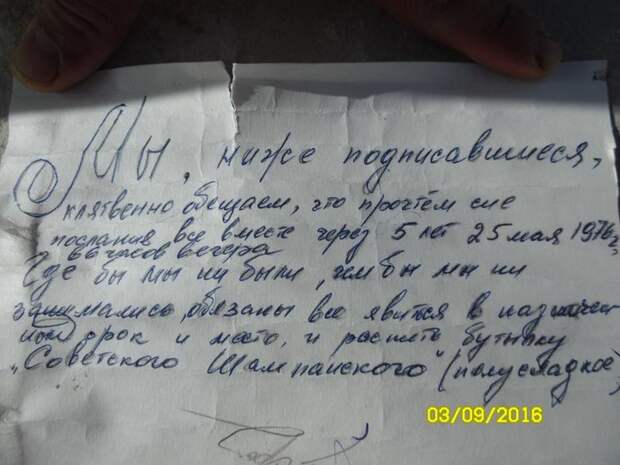 Мы, ниже подписавшиеся,
клятвенно обещаем, что прочтём сие
послание все вместе через 5 лет 25 мая 1976 г.
в 6 часов вечера
Где бы мы ни были, чем бы мы ни
занимались, обязаны все явится в назначен
ный срок и место, и распить бутылку
"Советского Шампанского" (полусладкое)
03/09/2016